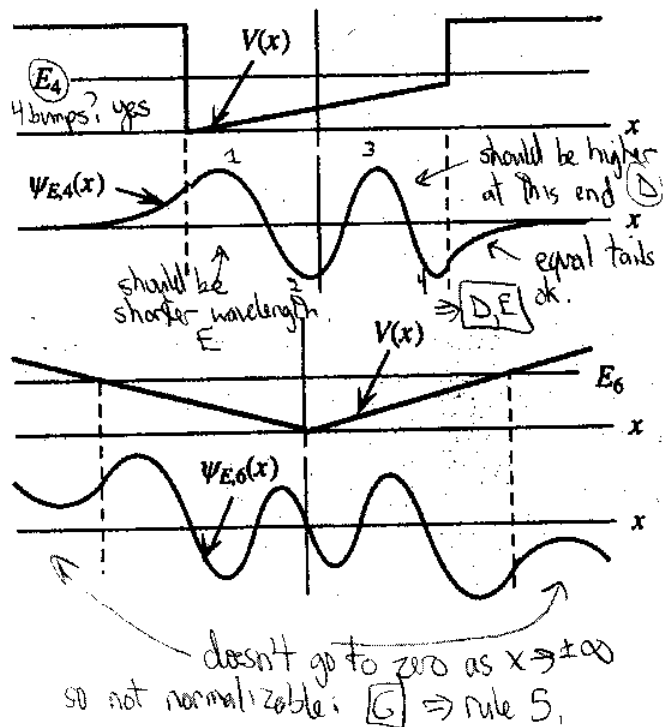 V(x)
E₄
4 bumps? yes
x
1
3
should be higher
at this end D
ψE,4(x)
x
equal tails
ok.
should be
shorter wavelength.
E
2
4
⇒ D, E
V(x)
E₆
x
ψE,6(x)
x
doesn't go to zero as x → ±∞
so not normalizable: G ⇒ rule 5.